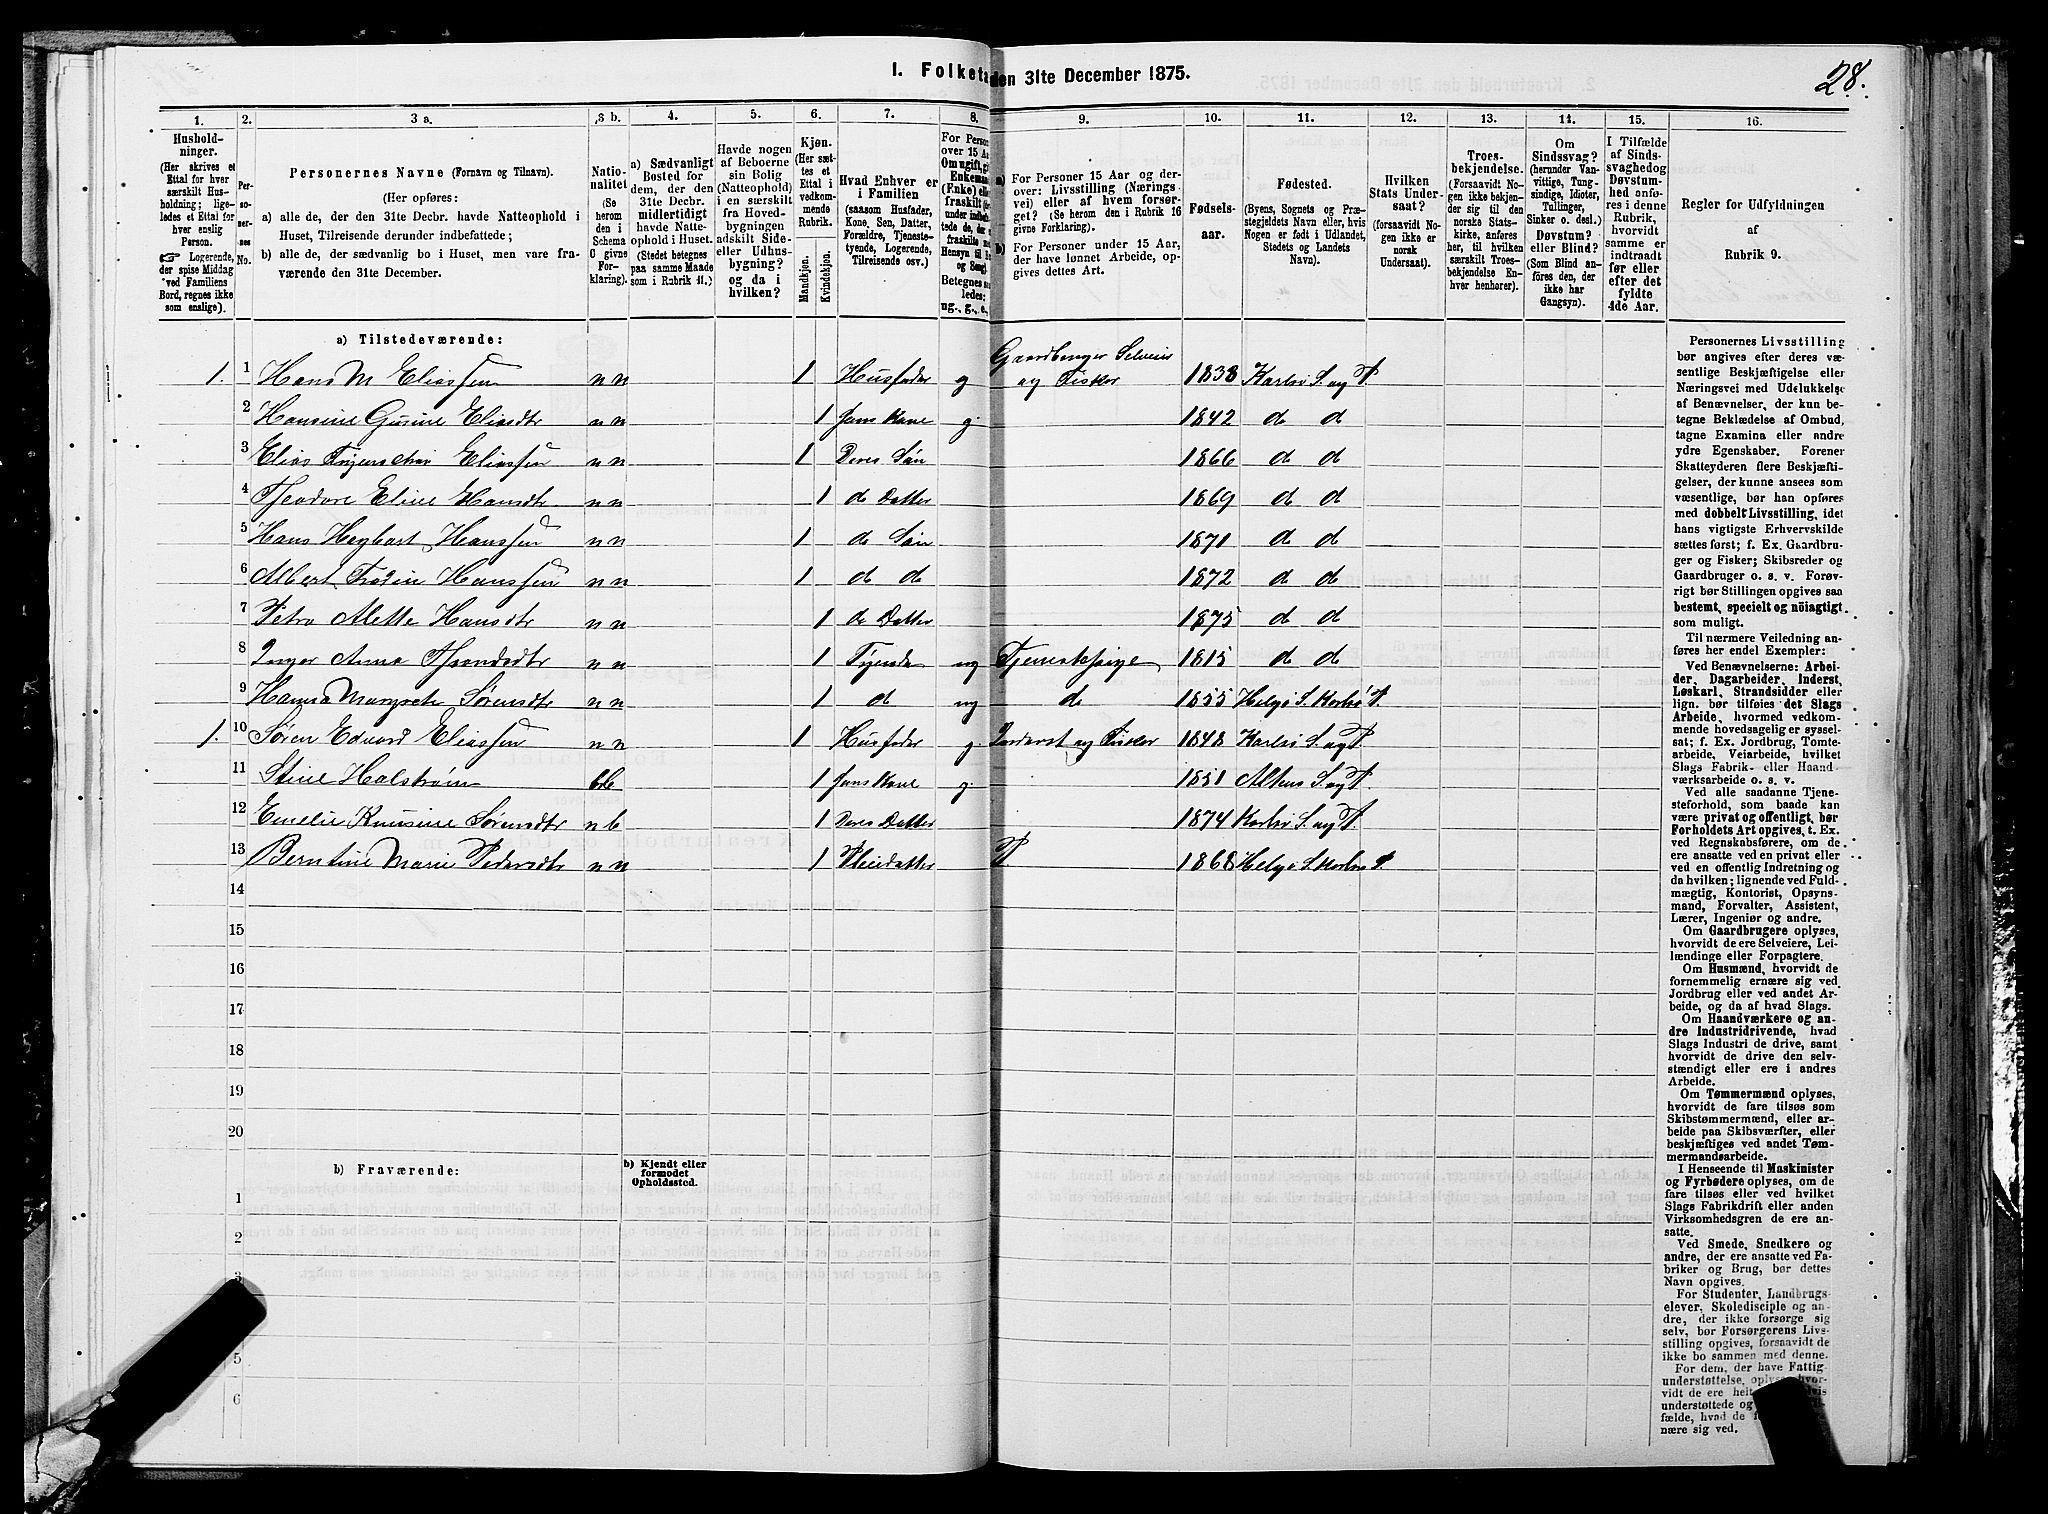 I. Folketa
den 31te December 1875.
28.
1.
2.
3 a.
3 b.
4.
5.
6.
7.
8.
9.
10.
11.
12.
13.
14.
15.
16.
Hushold-
ninger.
(Her skrives et
Ettal for hver
særskilt Hus-
holdning; lige-
ledes et Ettal for
hver enslig
Person.
☞ Logerende,
der spise Middag
ved Familiens
Bord, regnes ikke
som enslige).
Per-
so-
ner-
nes
No.
Personernes Navne (Fornavn og Tilnavn).
(Her opføres:
a) alle de, der den 31te Decbr. havde Natteophold i
Huset, Tilreisende derunder indbefattede;
b) alle de, der sædvanlig bo i Huset, men vare fra-
værende den 31te December.
Natio-
nalitet
(Se
herom
den i
Schema
C givne
For-
klaring).
a) Sædvanligt
Bosted for
dem, der den
31te Decbr.
midlertidigt
havde Natte-
ophold i Huset.
(Stedet betegnes
paa samme Maade
som i Rubrik 11.)
Havde nogen
af Beboerne
sin Bolig
(Natteophold)
i en særskilt
fra Hoved-
bygningen
adskilt Side-
eller Udhus-
bygning?
og da i
hvilken?
Kjøn.
(Her sæt-
tes et
Ettal i
vedkom-
mende
Rubrik.
Mandkjøn.
Kvindekjøn.
Hvad Enhver er
i Familien
(saasom Husfader,
Kone, Søn, Datter,
Forældre, Tjeneste-
tyende, Logerende,
Tilreisende osv.)
For Person
over 15 Aa
Om ugift, gi
Enkeman
(Enke) elle
fraskilt
under indbe
tede de, de
fraskilte
Hensyn til
og Seng)
Betegnes saa
ledes:
ug., g., e.,
a) For Personer 15 Aar og der-
over: Livsstilling (Nærings-
vei) eller af hvem forsør-
get? (Se herom den i Rubrik 16
givne Forklaring).
b) For Personer under 15 Aar,
der have lønnet Arbeide, op-
gives dettes Art.
Fødsels-
aar.
Fødested.
(Byens, Sognets og Præ-
stegjeldets Navn eller, hvis
Nogen er født i Udlandet,
Stedets og Landets
Navn).
Hvilken
Stats Under-
saat?
(forsaavidt No-
gen ikke er
norsk
Undersaat).
Troes-
bekjendelse.
(Forsaavidt No-
gen ikke bekjen-
der sig til den
norske Stats-
kirke, anføres
her, til hvilken
særskilt Troes-
bekjendelse En-
hver henhører).
Om
Sindssvag?
(herunder Van-
vittige, Tung-
sindige, Idioter,
Tullinger,
Sinker o. desl.)
Døvstum?
eller Blind?
(Som Blind an-
føres den, der
ikke har
Gangsyn).
I Tilfælde
af Sinds-
svaghed og
Døvstum-
hed anfø-
res i denne
Rubrik,
hvorvidt
samme er
indtraadt
før eller
efter det
fyldte
4de Aar.
Regler for Udfyldningen
af
Rubrik 9.
a) Tilstedeværende:
1. 1 Hans M Eliassen n n 1 Husfader g Gaardbruger Selveier og Fisker 1838 Karlsø S. og P.
2 Hansine Gurine Eliasdtr n n 1 hans Kone g. 1842 d d
3 Elias Eliassen n n 1 Deres Søn 1866 d d
4 Theodore Eline Hansdtr n n 1 do Datter 1869 d d
5 Hans Hegbart Hanssen n n 1 do Søn 1871 d d
6 Albert Hanssen n n 1 do do 1872 d d
7 Petra Alette Hansdtr n n 1 do Datter 1875 d d
8 Inger Anna n n 1 Tyende ug Tjenestepige 1815 d d
9 Hanna Margrete Sørensdtr n n 1 d ug do 1855 Helgø S. Karlsø P.
1. 10 Søren Edvard Eliassen n n 1 Husfader g. Inderst og Fisker 1848 Karlsø S. og P.
11 Stine Halstrøm 1 hans Kone g. 1851 Altens S. og P.
12 Emelie Knusine Sørensdtr n b 1 Deres Datter 1874 Karlsø S. og P.
13 Berntine Marie Pedersdtr n n 1 Pleiedatter P 1868 Helgø S. Karlsø P.
14
15
16
17
18
19
20
b) Fraværende:
b) Kjendt eller
formodet
Opholdssted.
1
2
3
5
6
Personernes Livsstilling
bør angives efter deres væ-
sentlige Beskjæftigelse eller
Næringsvei med Udelukkelse
af Benævnelser, der kun be-
tegne Beklædelse af Ombud,
tagne Examina eller andre
ydre Egenskaber. Forener
Skatteyderen flere Beskjæfti-
gelser, der kunne ansees som
væsentlige, bør han opføres
med dobbelt Livsstilling, idet
hans vigtigste Erhvervskilde
sættes først; f. Ex. Gaardbru-
ger og Fisker; Skibsreder og
Gaardbruger o. s. v. Forøv-
rigt bør Stillingen opgives saa
bestemt, specielt og nöiagtigt
som muligt.
Til nærmere Veiledning an-
føres her endel Exempler:
Ved Benævnelserne: Arbei-
der, Dagarbeider, Inderst,
Løskarl, Strandsidder eller
lign. bør tilføies det Slags
Arbeide, hvormed vedkom-
mende hovedsagelig er syssel-
sat; f. Ex. Jordbrug, Tomte-
arbeide, Veiarbeide, hvilket
Slags Fabrik- eller Haand-
værksarbeide o. s. v.
Ved alle saadanne Tjene-
steforhold, som baade kan
være privat og offentligt, bør
Forholdets Art opgives, t. Ex.
ved Regnskabsførere, om de
ere ansatte ved en privat eller
ved en offentlig Indretning og
da hvilken; lignende ved Fuld-
mægtig, Kontorist, Opsyns-
mand, Forvalter, Assistent,
Lærer, Ingeniør og andre.
Om Gaardbrugere oplyses,
hvorvidt de ere Selveiere, Lei-
lændinge eller Forpagtere.
Om Husmænd, hvorvidt de
fornemmelig ernære sig ved
Jordbrug eller ved andet Ar-
beide, og da af hvad Slags.
Om Haandværkere og an-
dre Industridrivende, hvad
Slags Industri de drive, samt
hvorvidt de drive den selv-
stændigt eller ere i andres
Arbeide.
Om Tømmermænd oplyses,
hvorvidt de fare tilsøs som
Skibstømmermænd, eller ar-
beide paa Skibsværfter, eller
beskjæftiges ved andet Tøm-
mermandsarbeide.
I Henseende til Maskinister
og Fyrbødere oplyses, om de
fare tilsøs eller ved hvilket
Slags Fabrikdrift eller anden
Virksomhedsgren de ere an-
satte.
Ved Smede, Snedkere og
andre, der ere ansatte ved Fa-
briker og Brug, bør dettes
Navn opgives.
For Studenter, Landbrugs-
elever, Skoledisciple og an-
dre, der ikke forsørge sig
selv, bør Forsørgerens Livs-
stilling opgives, forsaavidt de
ikke bo sammen med denne.
For dem, der have Fattig-
understøttelse, oplyses hvor-
vidt de ere helt
understøttede og
fælde, hvad de
nære sig ved.